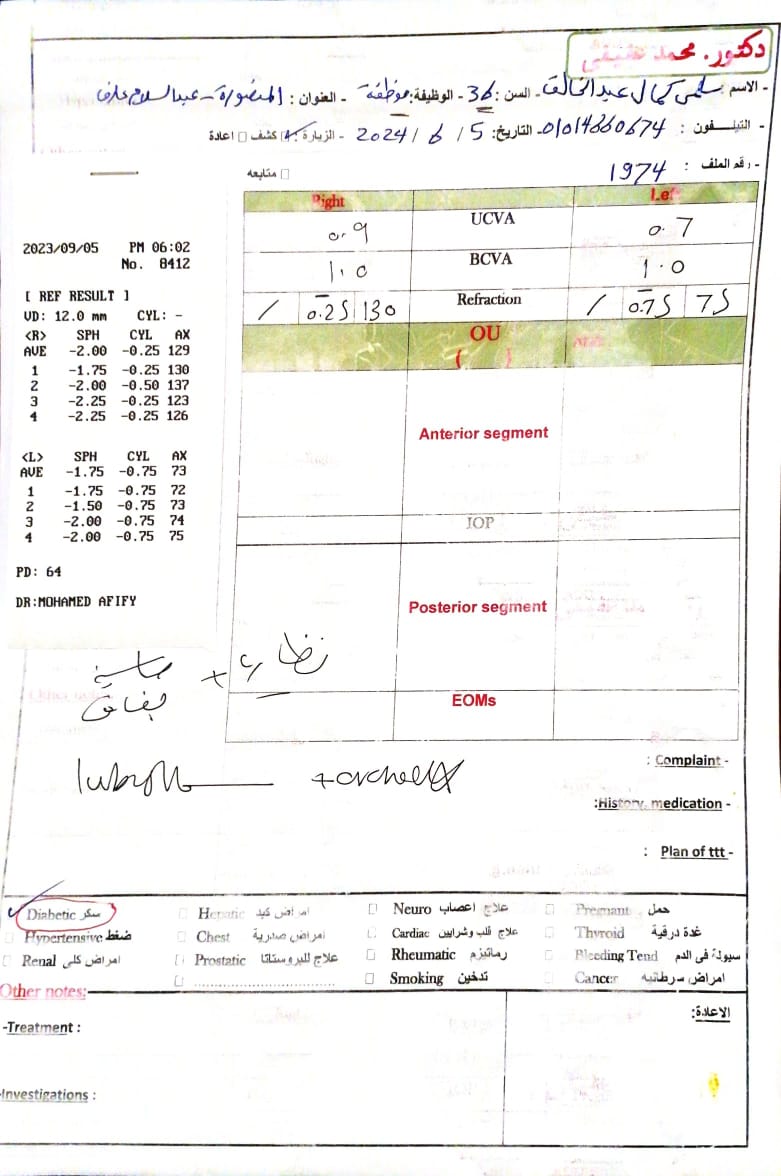 دكتور. محمد عفيفي
- الاسم : سلمى كمال عبدالخالق - السن : 36 - الوظيفة: موظفة - العنوان : المنصورة - عبدالسلام عارف
- التيلـــفون : 01014860674 - التاريخ: 5 / 6 / 2024 - الزيارة: كشف اعادة
- رقم الملف : 1974
متابعه
Right Left
0.9 UCVA 0.7
1.0 BCVA 1.0
/ -0.25 130 Refraction / -0.75 75
OU
( )
Anterior segment
IOP
Posterior segment
EOMs
2023/09/05 PM 06:02
No. 8412
[ REF RESULT ]
VD: 12.0 mm CYL: -
<R> SPH CYL AX
AVE -2.00 -0.25 129
1 -1.75 -0.25 130
2 -2.00 -0.50 137
3 -2.25 -0.25 123
4 -2.25 -0.25 126
<L> SPH CYL AX
AVE -1.75 -0.75 73
1 -1.75 -0.75 72
2 -1.50 -0.75 73
3 -2.00 -0.75 74
4 -2.00 -0.75 75
PD: 64
DR:MOHAMED AFIFY
+
Complaint - :
:History, medication -
: Plan of ttt -
Diabetic سكر Hepatic امراض كبد Neuro علاج اعصاب Pregnant حمل
Hypertensive ضغط Chest امراض صدرية Cardiac علاج قلب وشرايين Thyroid غدة درقية
Renal امراض كلى Prostatic علاج للبروستاتا Rheumatic رماتيزم Bleeding Tend سيولة فى الدم
Smoking تدخين Cancer امراض سرطانيه
Other notes:
-Treatment :
الاعادة:
-Investigations :